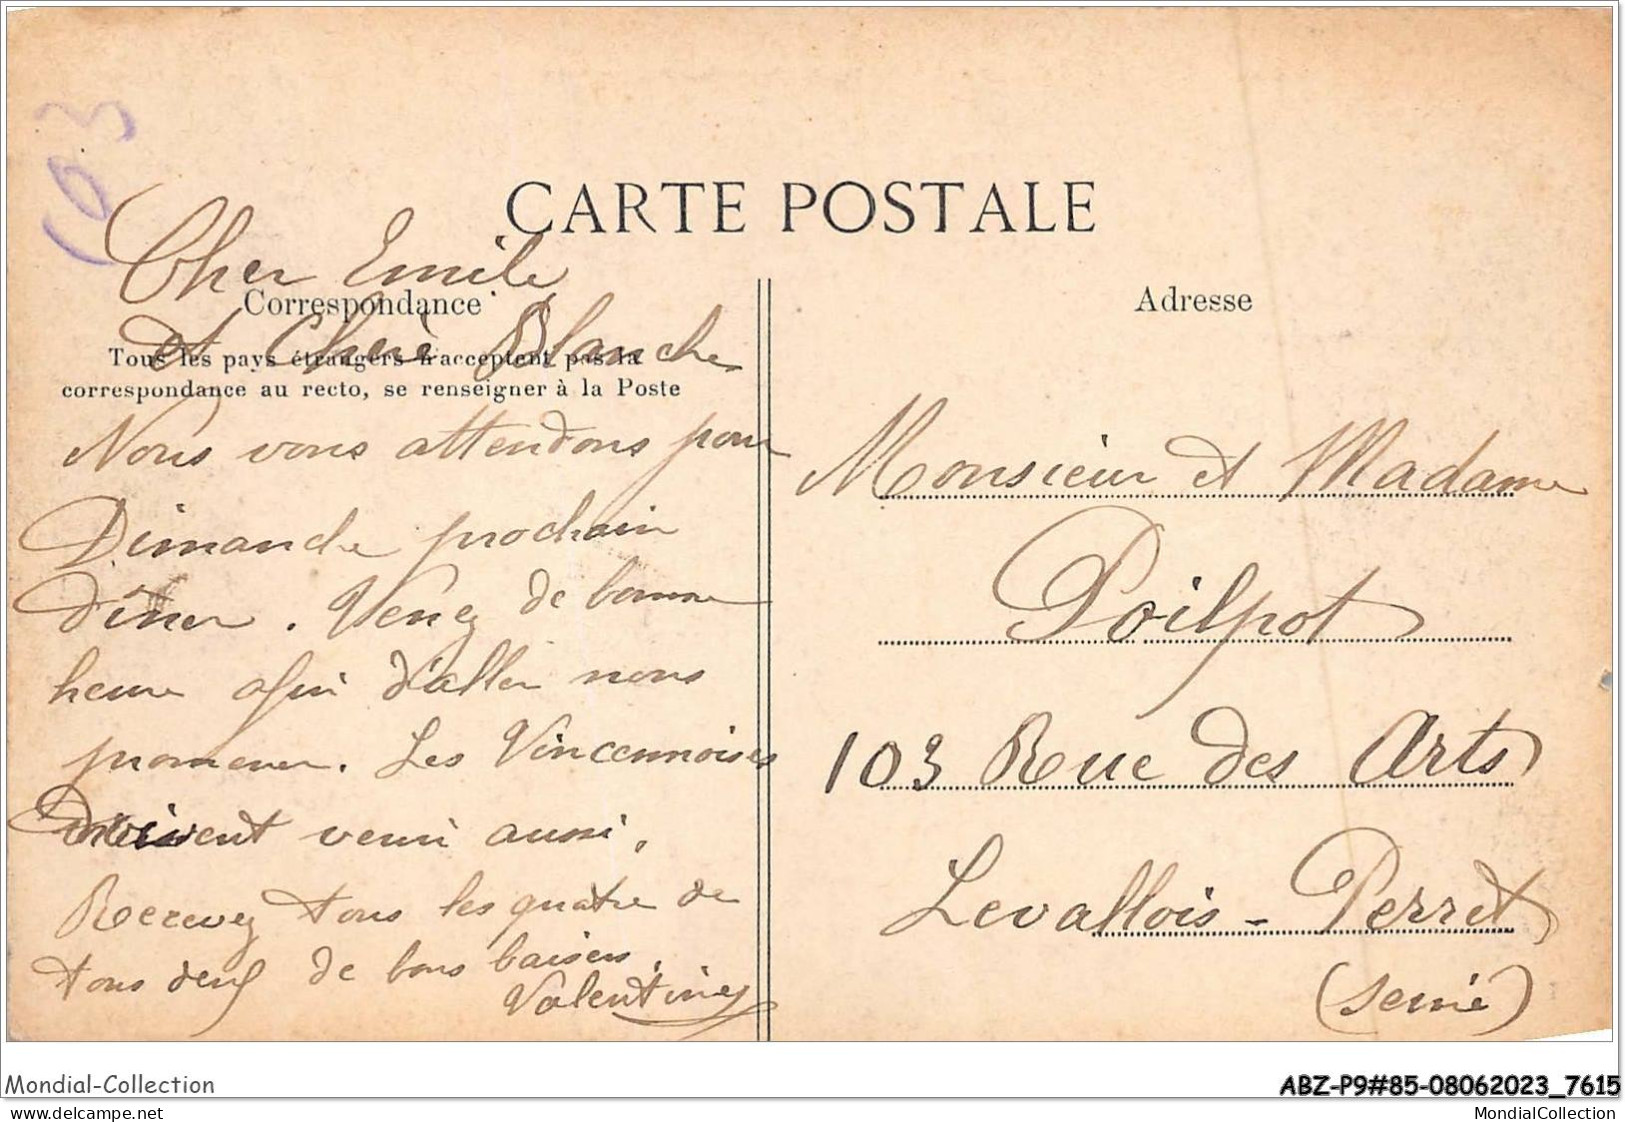 103
CARTE POSTALE
Correspondance
Tous les pays étrangers n'acceptent pas la
correspondance au recto, se renseigner à la Poste
Cher Emile
et Chère Blanche
Nous vous attendons pour
Dimanche prochain
diner. Venez de bonne
heure afin d'aller nous
promener. Les Vincennoises
doivent venir aussi.
Recevez tous les quatre de
tous deux de bons baisers.
Valentine
Adresse
Monsieur et Madame
Poilpot
103 Rue des Arts
Levallois-Perret
(Seine)
Mondial-Collection
ABZ-P9#85-08062023_7615
www.delcampe.net
MondialCollection